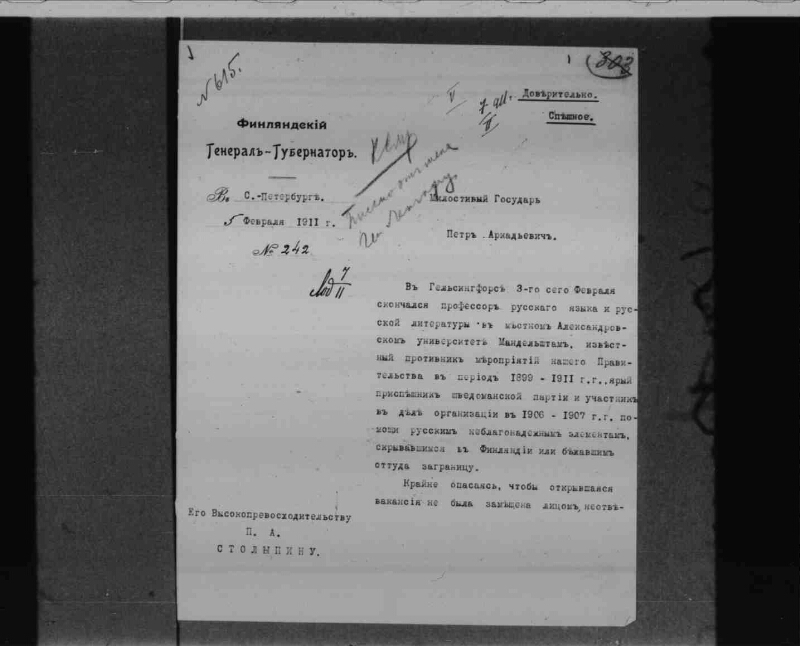 № 615.
303
V
7/II 911.
Довѣрительно.
Спѣшное.
Финляндскій
Генералъ-Губернаторъ.
Въ С.-Петербургѣ.
5 Февраля 1911 г.
№ 242
7/II
Милостивый Государь
Петръ Аркадьевичъ.
Въ Гельсингфорсѣ 3-го сего Февраля
скончался профессоръ русскаго языка и рус-
ской литературы въ мѣстномъ Александров-
скомъ университетѣ Мандельштам, извѣст-
ный противникъ мѣропріятій нашего Прави-
тельства въ періодъ 1899 - 1911 г.г., ярый
приспѣшникъ шведоманской партіи и участникъ
въ дѣлѣ организаціи въ 1906 - 1907 г.г. по-
мощи русскимъ неблагонадежнымъ элементамъ,
скрывавшимся въ Финляндіи или бѣжавшимъ
оттуда заграницу.
Крайне опасаясь, чтобы открывшаяся
вакансія не была замѣщена лицомъ, неотвѣ-
Его Высокопревосходительству
П. А.
СТОЛЫПИНУ.